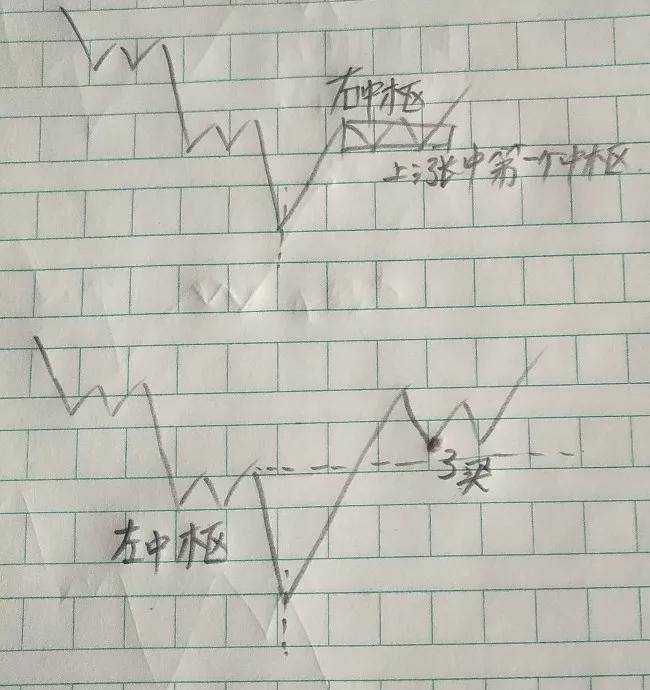 右中枢
上涨中第一个中枢
3买
左中枢